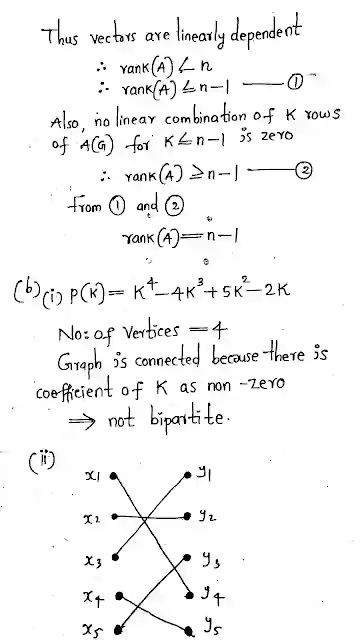 Thus vectors are linearly dependent
∴ rank(A) < n
∴ rank(A) ≤ n-1 — ①
Also, no linear combination of K rows
of A(G) for K < n-1 is zero
∴ rank(A) ≥ n-1 — ②
from ① and ②
rank(A) = n-1
(b) (i) P(K) = K⁴-4K³+5K²-2K
No: of Vertices = 4
Graph is connected because there is
coefficient of K as non-zero
⇒ not bipartite.
(ii)
x1 y1
x2 y2
x3 y3
x4 y4
x5 y5